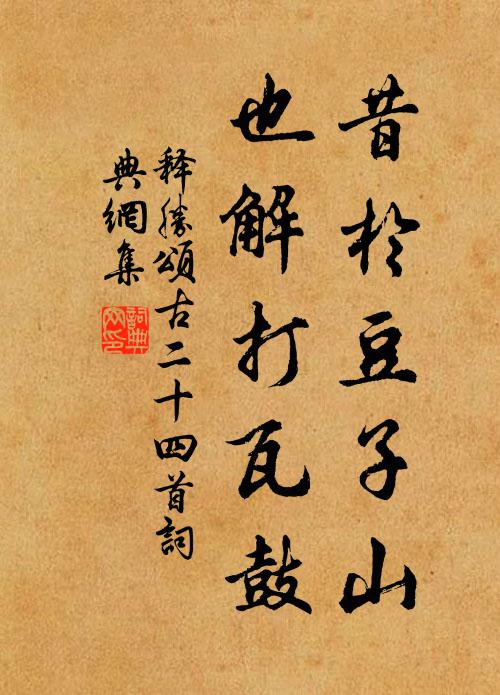 昔於豆子山
也解打瓦鼓
释勝頌古二十四首詞
典網集
詞典网印